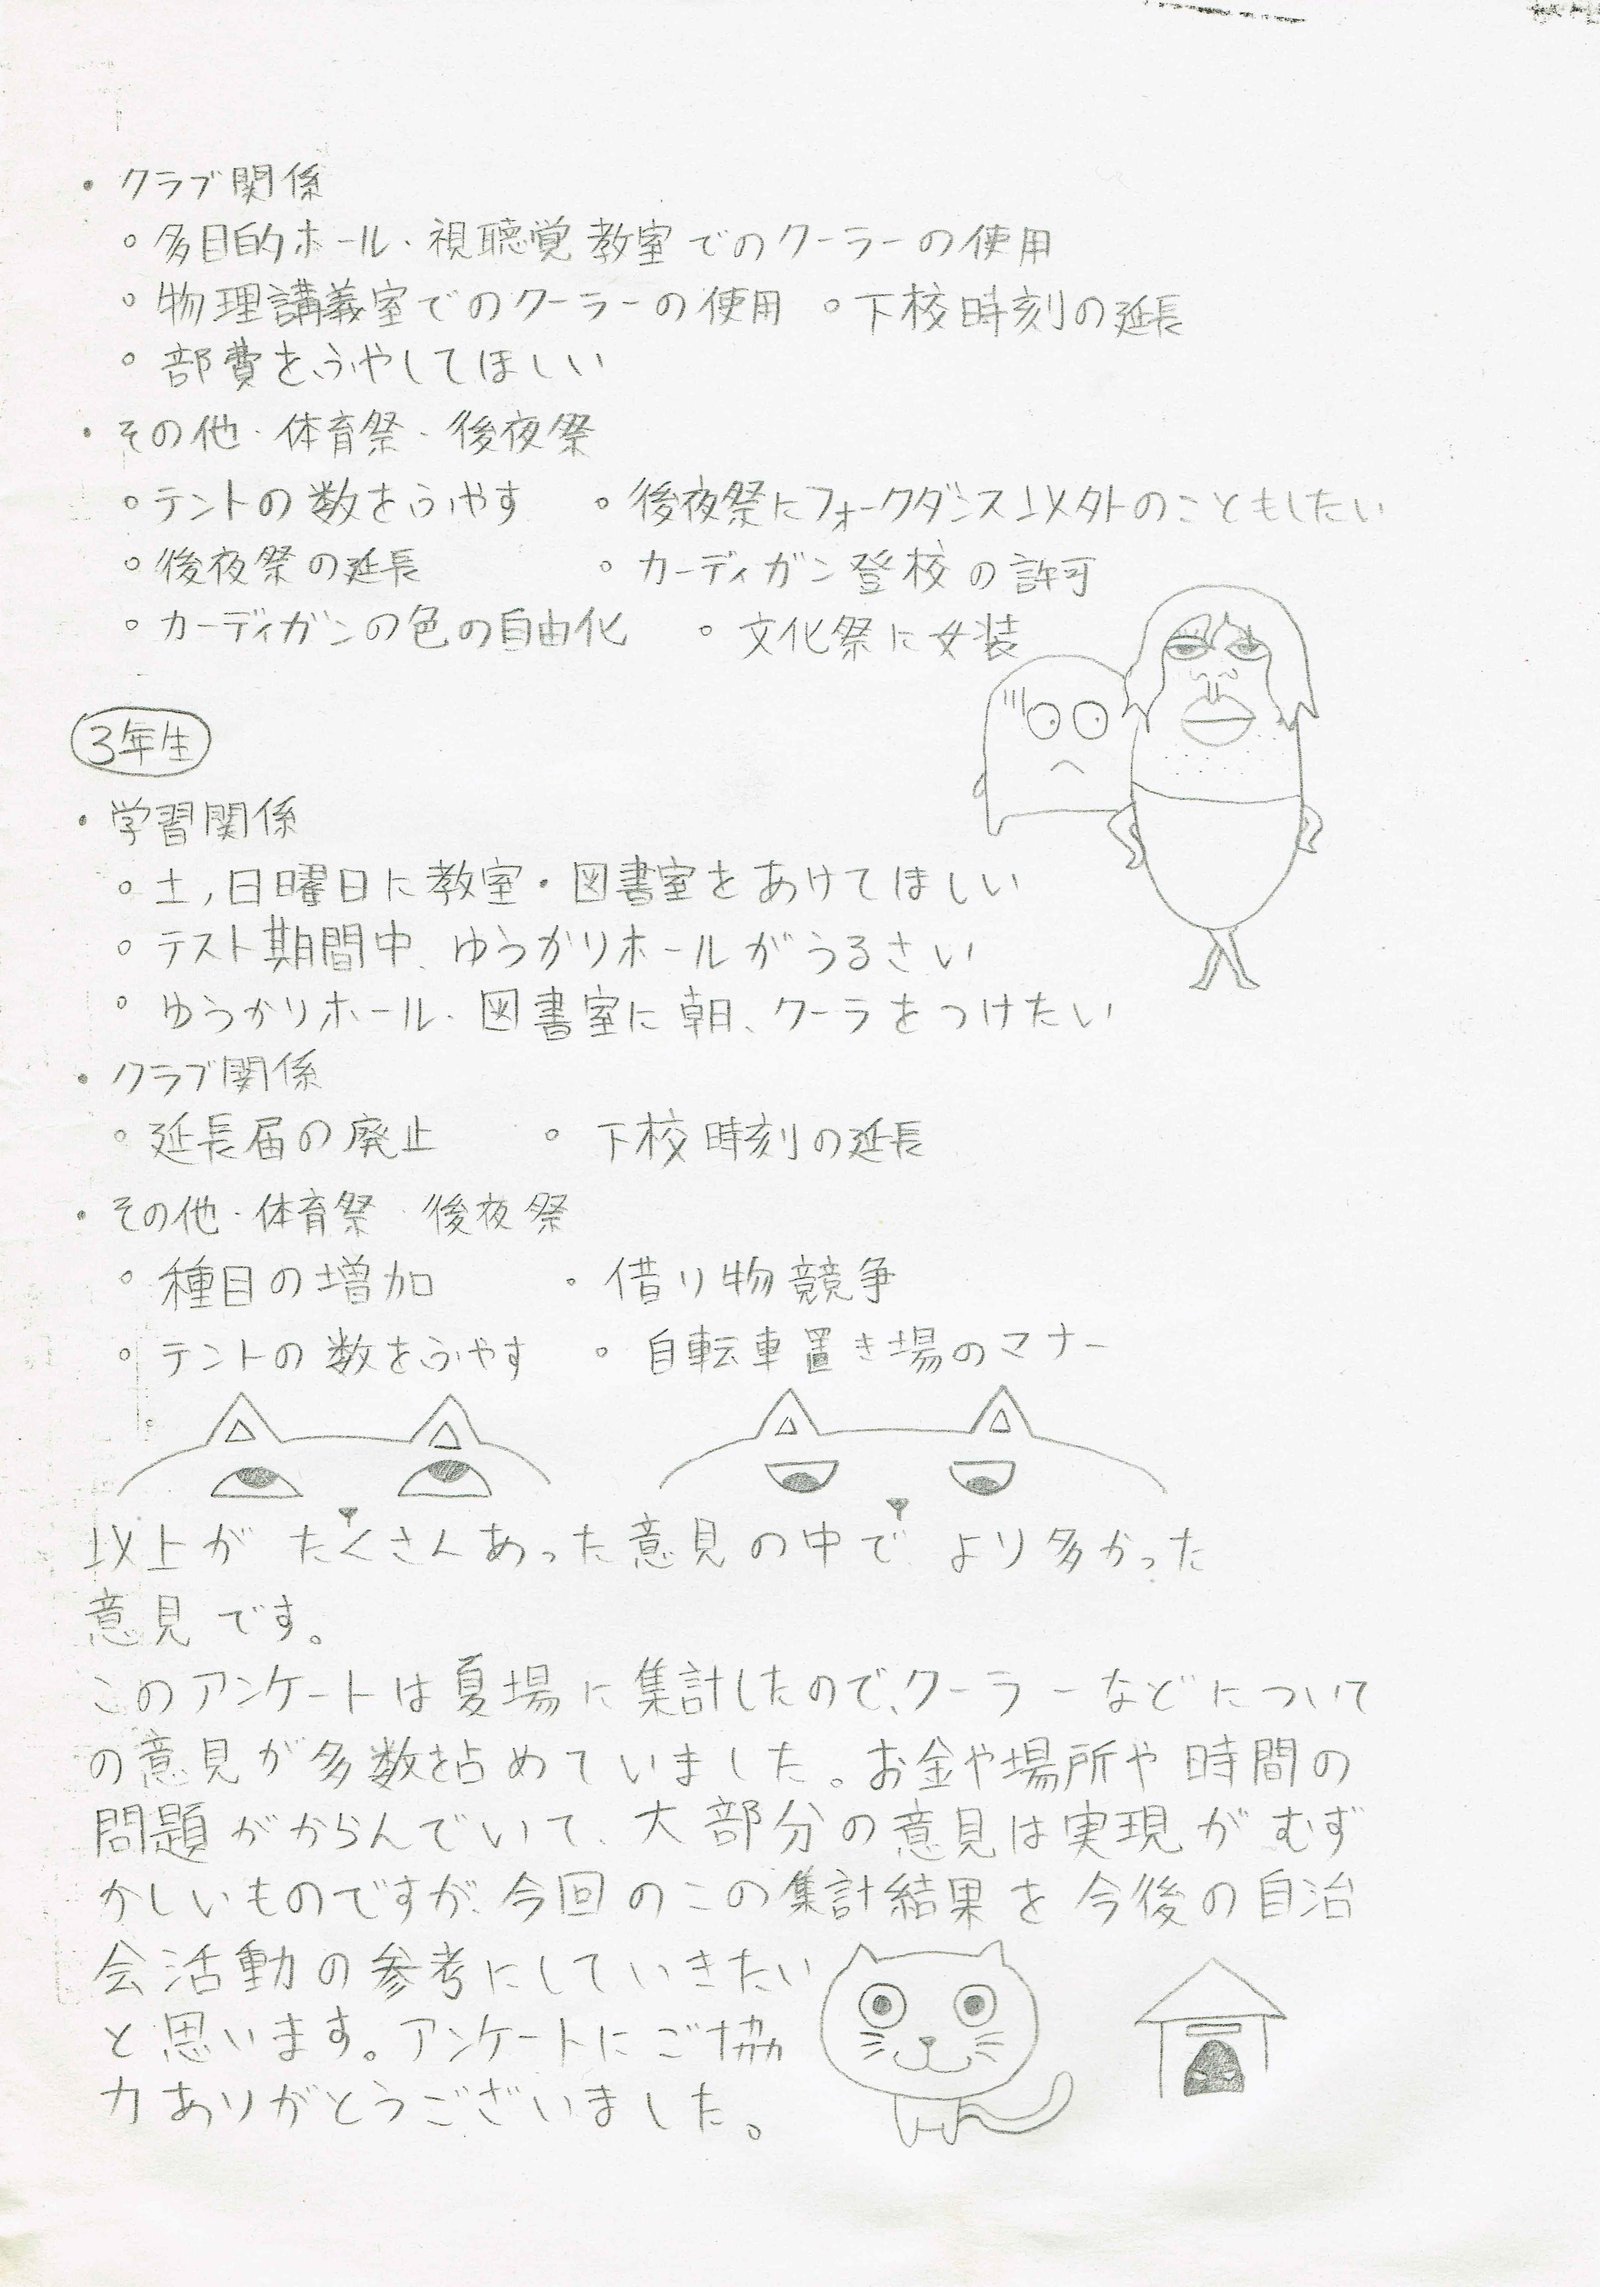 ・クラブ関係
○多目的ホール・視聴覚教室でのクーラーの使用
○物理講義室でのクーラーの使用 ○下校時刻の延長
○部費をふやしてほしい
・その他・体育祭・後夜祭
○テントの数をふやす ○後夜祭にフォークダンス以外のこともしたい
○後夜祭の延長 ○カーディガン登校の許可
○カーディガンの色の自由化 ○文化祭に女装
3年生
・学習関係
○土,日曜日に教室・図書室をあけてほしい
○テスト期間中、ゆうかりホールがうるさい
○ゆうかりホール・図書室に朝、クーラをつけたい
・クラブ関係
○延長届の廃止 ○下校時刻の延長
・その他・体育祭 後夜祭
○種目の増加 ○借り物競争
○テントの数をふやす ○自転車置き場のマナー
以上が たくさんあった意見の中で より多かった
意見です。
このアンケートは夏場に集計したので、クーラーなどについて
の意見が多数を占めていました。お金や場所や時間の
問題がからんでいて、大部分の意見は実現がむず
かしいものですが、今回のこの集計結果を今後の自治
会活動の参考にしていきたい
と思います。アンケートにご協
力ありがとうございました。